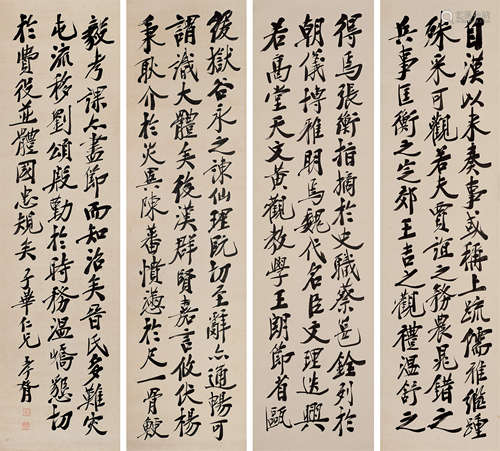 自漢以來奏事或稱上疏儒雅繼踵
殊采可觀若夫賈誼之務農晁錯之
兵事匡衡之定郊王吉之觀禮溫舒之
得焉張衡指摘於史職蔡邕銓列於
朝儀博雅明焉魏代名臣文理迭興
若高堂天文黃觀教學王朗節省甄
緩獄谷永之諫仙理既切至辭亦通暢可
謂識大體矣後漢群賢嘉言攸伏楊
秉耿介於災異陳蕃憤懣於尺一骨鯁
毅考課亦盡節而知治矣晉氏多難災
屯流移劉頌殷勤於時務溫嶠懇切
於費役並體國忠規矣 子華仁兄 孝胥